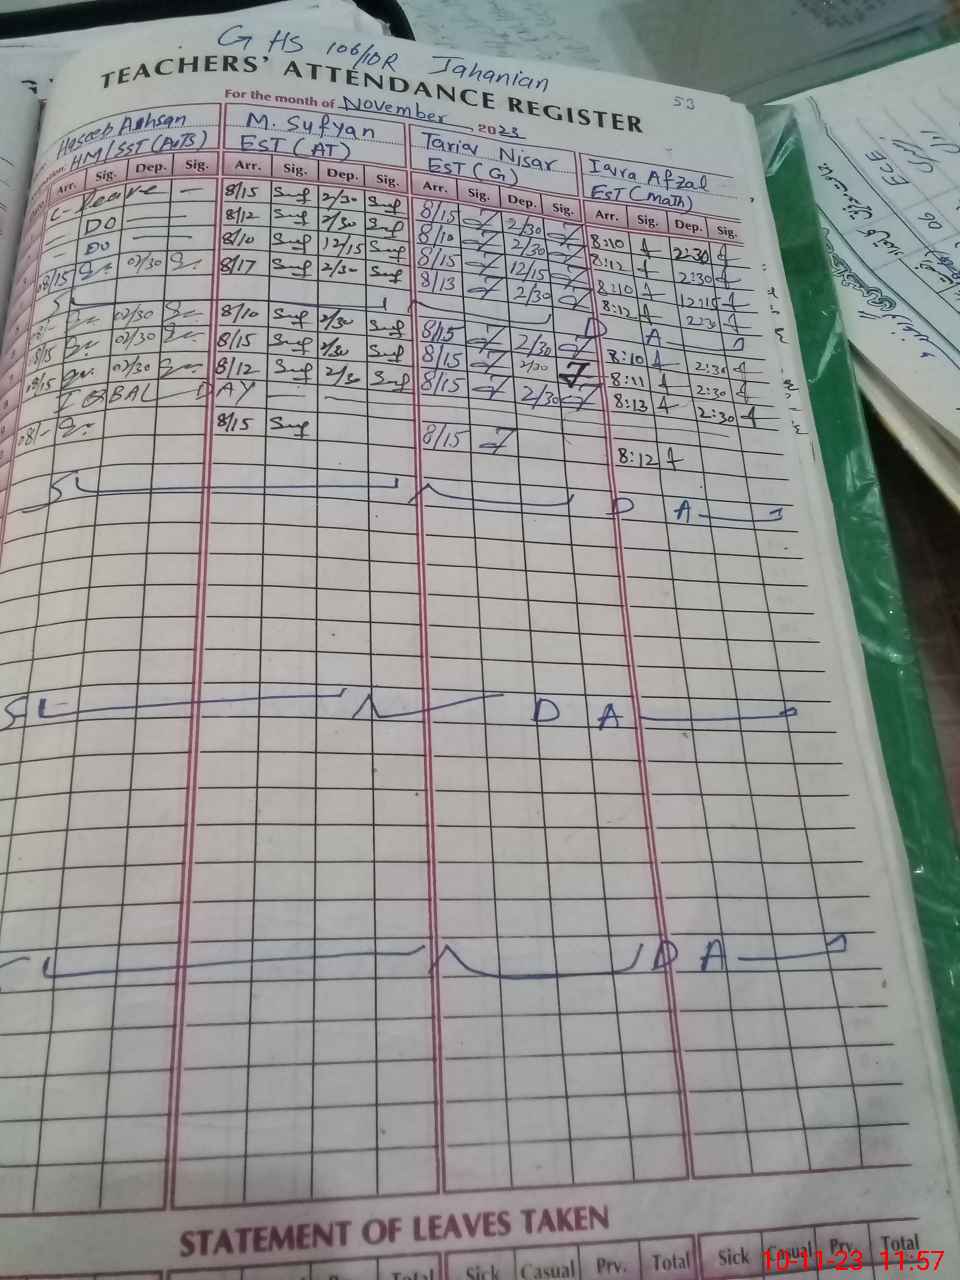 GHS 106/10R Jahanian
TEACHERS' ATTENDANCE REGISTER
53
For the month of November 2023
Haseeb Ahsan M. Sufyan Tariq Nisar Iqra Afzal
HM/SST (Arts) EST (AT) EST (G) EST (Math)
Arr. Sig. Dep. Sig. Arr. Sig. Dep. Sig. Arr. Sig. Dep. Sig. Arr. Sig. Dep. Sig.
C-Leave — 8/15 Suf 2/30 Suf 8/15 2/30 8:10 2:30
— DO — 8/12 Suf 2/30 Suf 8/10 2/30 8:12 2:30
— DO — 8/10 Suf 12/15 Suf 8/15 12/15 8:10 12:15
08/15 02/30 8/17 Suf 2/30 Suf 8/13 2/30 8:12 2:30
S U N D A Y
08/- 02/30 8/10 Suf 2/30 Suf 8/15 2/30 8:10 2:30
08/15 02/30 8/15 Suf 2/30 Suf 8/15 2/30 8:11 2:30
08/15 02/30 8/12 Suf 2/30 Suf 8/15 2/30 8:13 2:30
IQBAL DAY
08/- 8/15 Suf 8/15 8:12
S U N D A Y
S U N D A Y
S U N D A Y
STATEMENT OF LEAVES TAKEN
Total Sick Casual Prv. Total Sick Casual Prv. Total
10-11-23 11:57